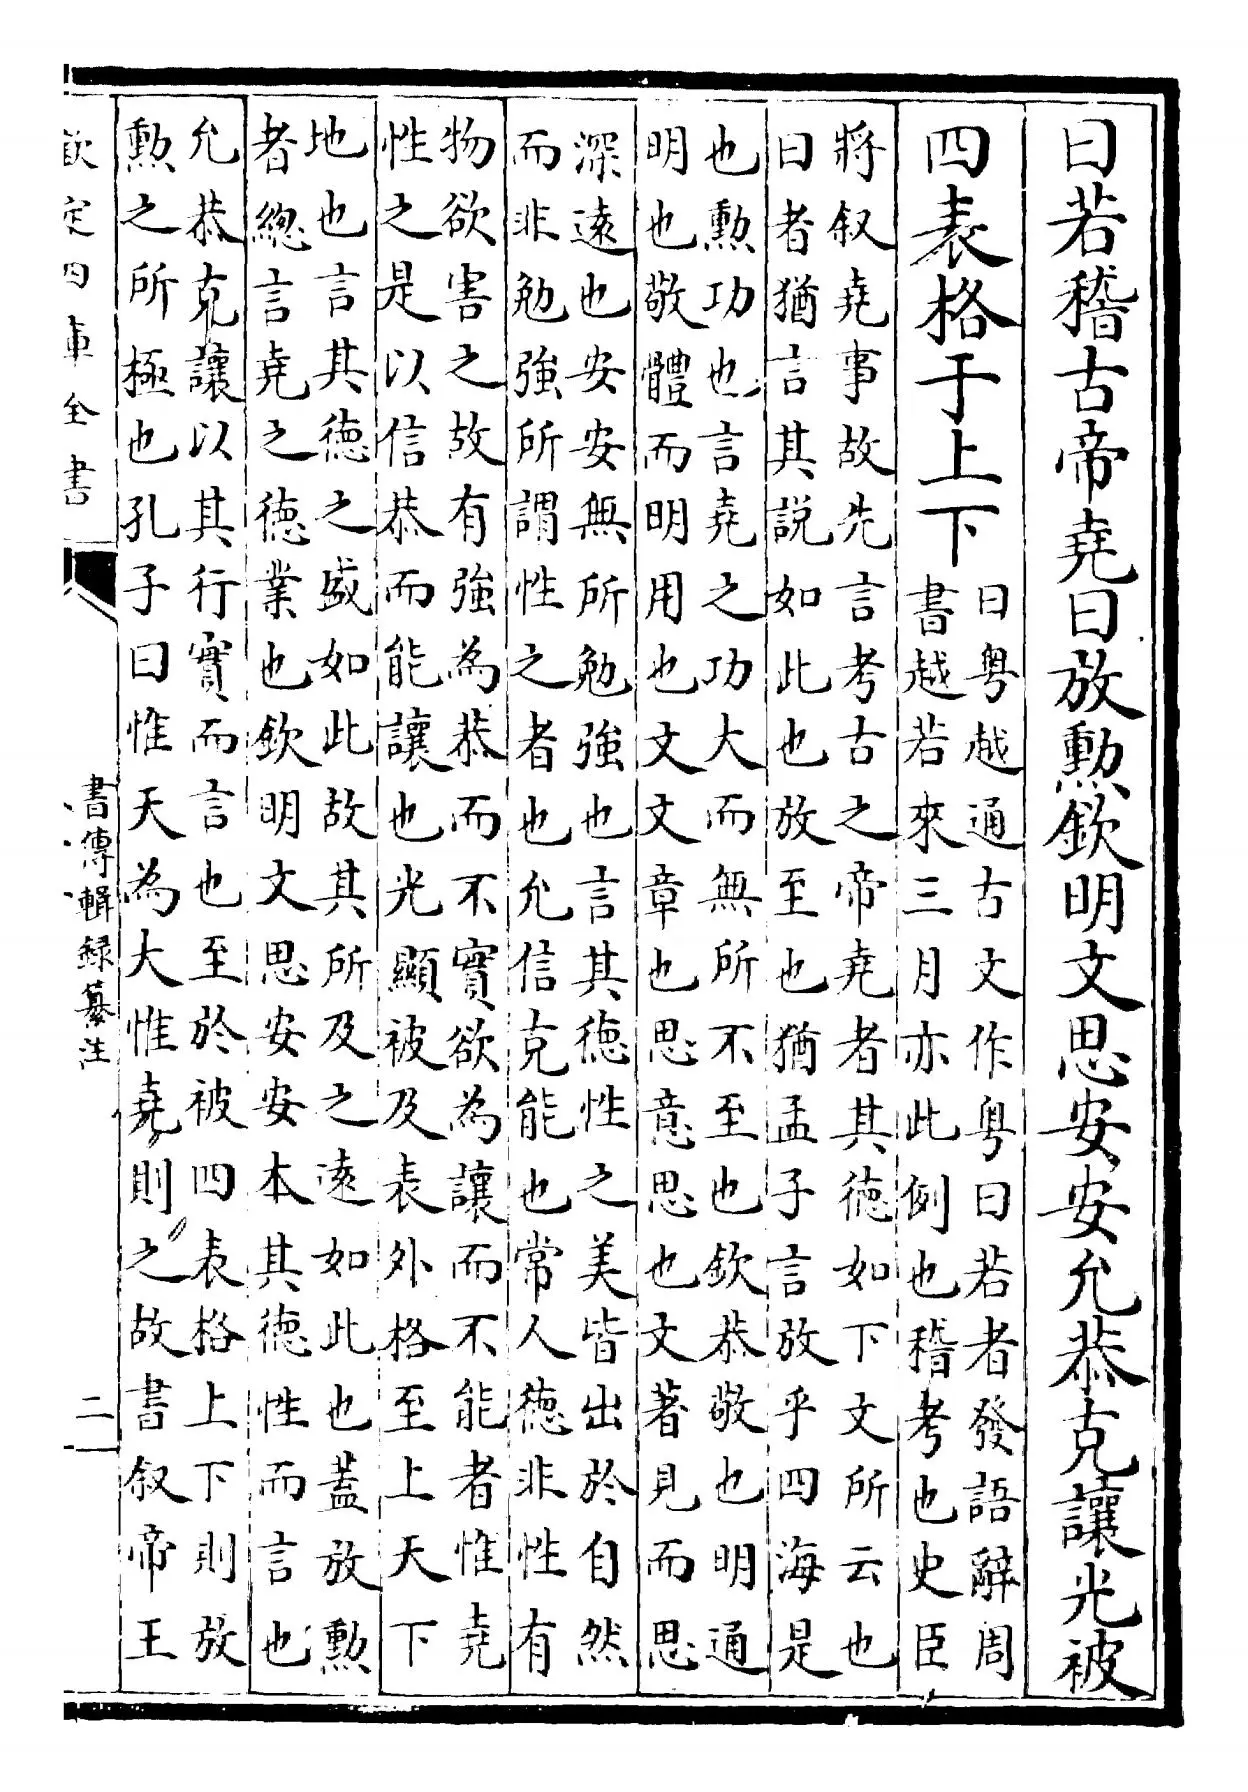 曰若稽古帝堯曰放勲欽明文思安安允恭克讓光被
四表格于上下
曰粤越通古文作粤曰若者發語辭周
書越若來三月亦此例也稽考也史臣
將叙堯事故先言考古之帝堯者其徳如下文所云也
曰者猶言其説如此也放至也猶孟子言放乎四海是
也勲功也言堯之功大而無所不至也欽恭敬也明通
明也敬體而明用也文文章也思意思也文著見而思
深遠也安安無所勉強也言其徳性之美皆出於自然
而非勉強所謂性之者也允信克能也常人徳非性有
物欲害之故有強為恭而不實欲為讓而不能者惟堯
性之是以信恭而能讓也光顯被及表外格至上天下
地也言其徳之盛如此故其所及之逺如此也蓋放勲
者總言堯之徳業也欽明文思安安本其徳性而言也
允恭克讓以其行實而言也至於被四表格上下則放
勲之所極也孔子曰惟天為大惟堯則之故書叙帝王
欽定四庫全書
書傳輯録纂注
二